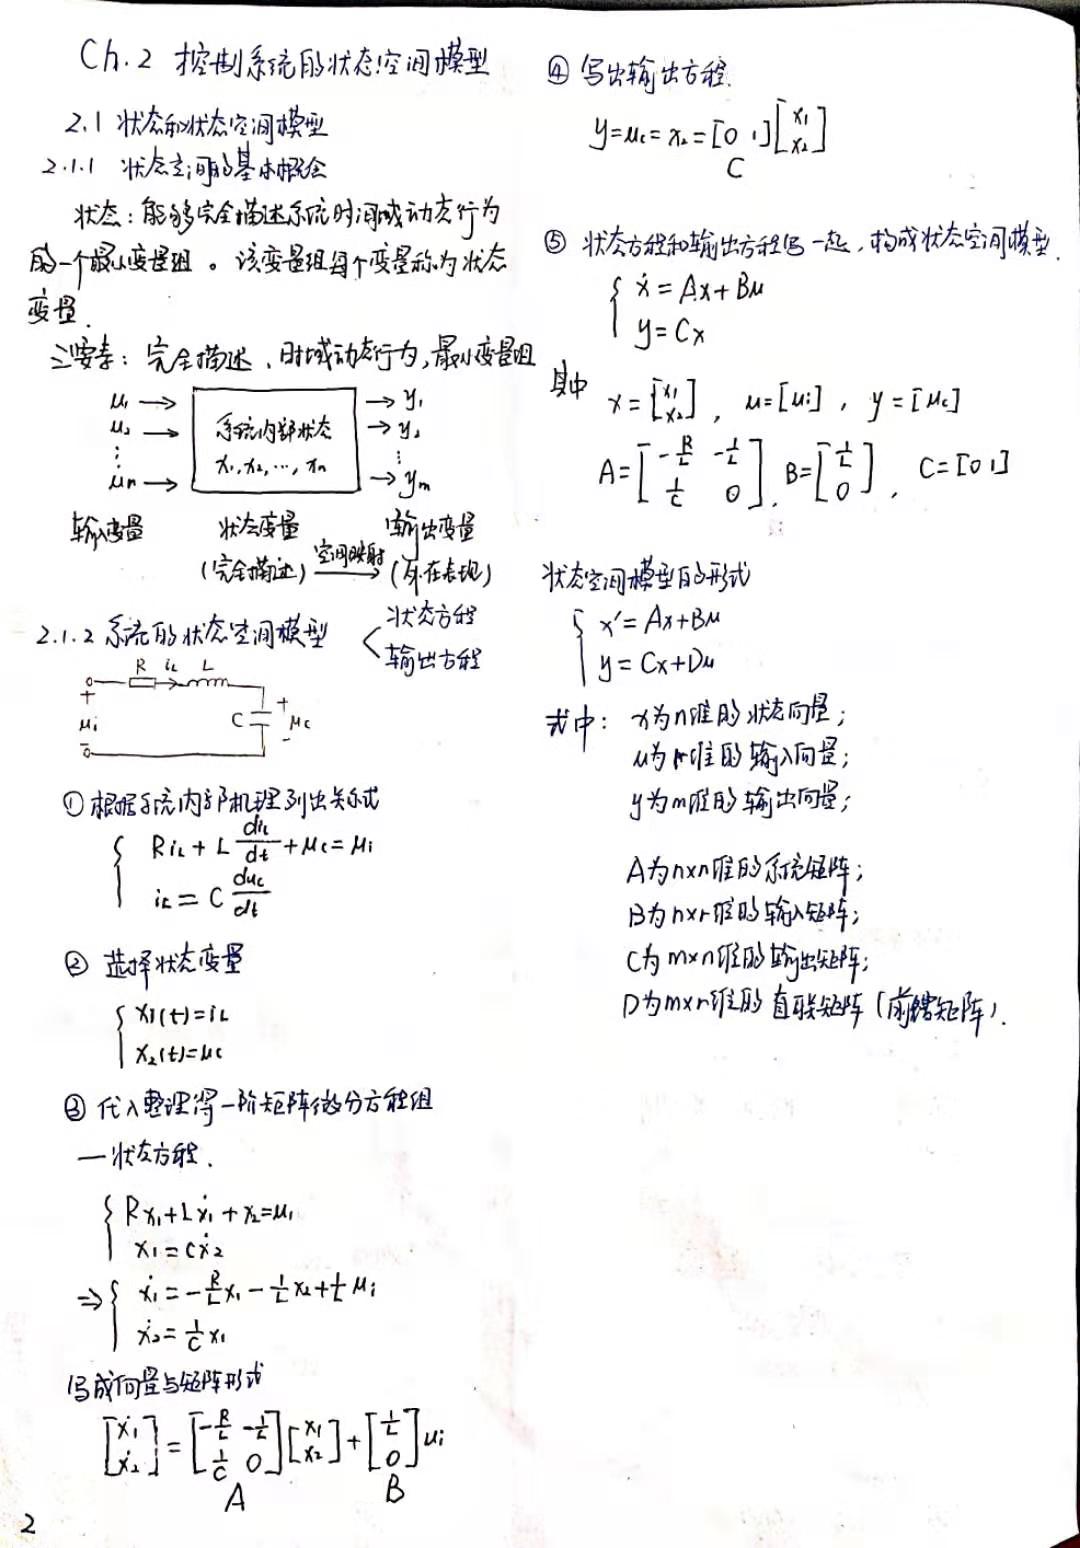 Ch.2 控制系统的状态空间模型
2.1 状态和状态空间模型
2.1.1 状态空间的基本概念
状态：能够完全描述系统时间域动态行为
的一个最小变量组。该变量组每个变量称为状态
变量.
三要素：完全描述、时域动态行为，最小变量组
u₁ → → y₁
u₂ → 系统内部状态 → y₂
⋮ x₁,x₂,…,xₙ ⋮
uₙ → → yₘ
输入变量 状态变量 输出变量
(完全描述) 空间映射 → (外在表现)
2.1.2 系统的状态空间模型 < 状态方程
输出方程
R i_L L
+
u_i C + u_c
- -
① 根据系统内部机理列出关系式
{ R i_L + L di_L/dt + u_c = u_i
i_L = C du_c/dt
② 选择状态变量
{ x₁(t)=i_L
x₂(t)=u_c
③ 代入整理得一阶矩阵微分方程组
—状态方程.
{ Rx₁+Lẋ₁+x₂=u₁
x₁=Cẋ₂
⇒ { ẋ₁=-R/L x₁ - 1/L x₂ + 1/L u_i
ẋ₂=1/C x₁
写成向量与矩阵形式
[ẋ₁ ; ẋ₂] = [-R/L -1/L ; 1/C 0] [x₁ ; x₂] + [1/L ; 0] u_i
A B
2
④ 写出输出方程.
y=u_c=x₂=[0 1] [x₁ ; x₂]
C
⑤ 状态方程和输出方程写一起，构成状态空间模型.
{ ẋ=Ax+Bu
y=Cx
其中 x=[x₁ ; x₂], u=[u_i], y=[u_c]
A=[-R/L -1/L ; 1/C 0], B=[1/L ; 0], C=[0 1]
状态空间模型的形式
{ x'=Ax+Bu
y=Cx+Du
式中：x为n维的状态向量；
u为r维的输入向量；
y为m维的输出向量；
A为n×n维的系统矩阵；
B为n×r维的输入矩阵；
C为m×n维的输出矩阵；
D为m×r维的直联矩阵(前馈矩阵).